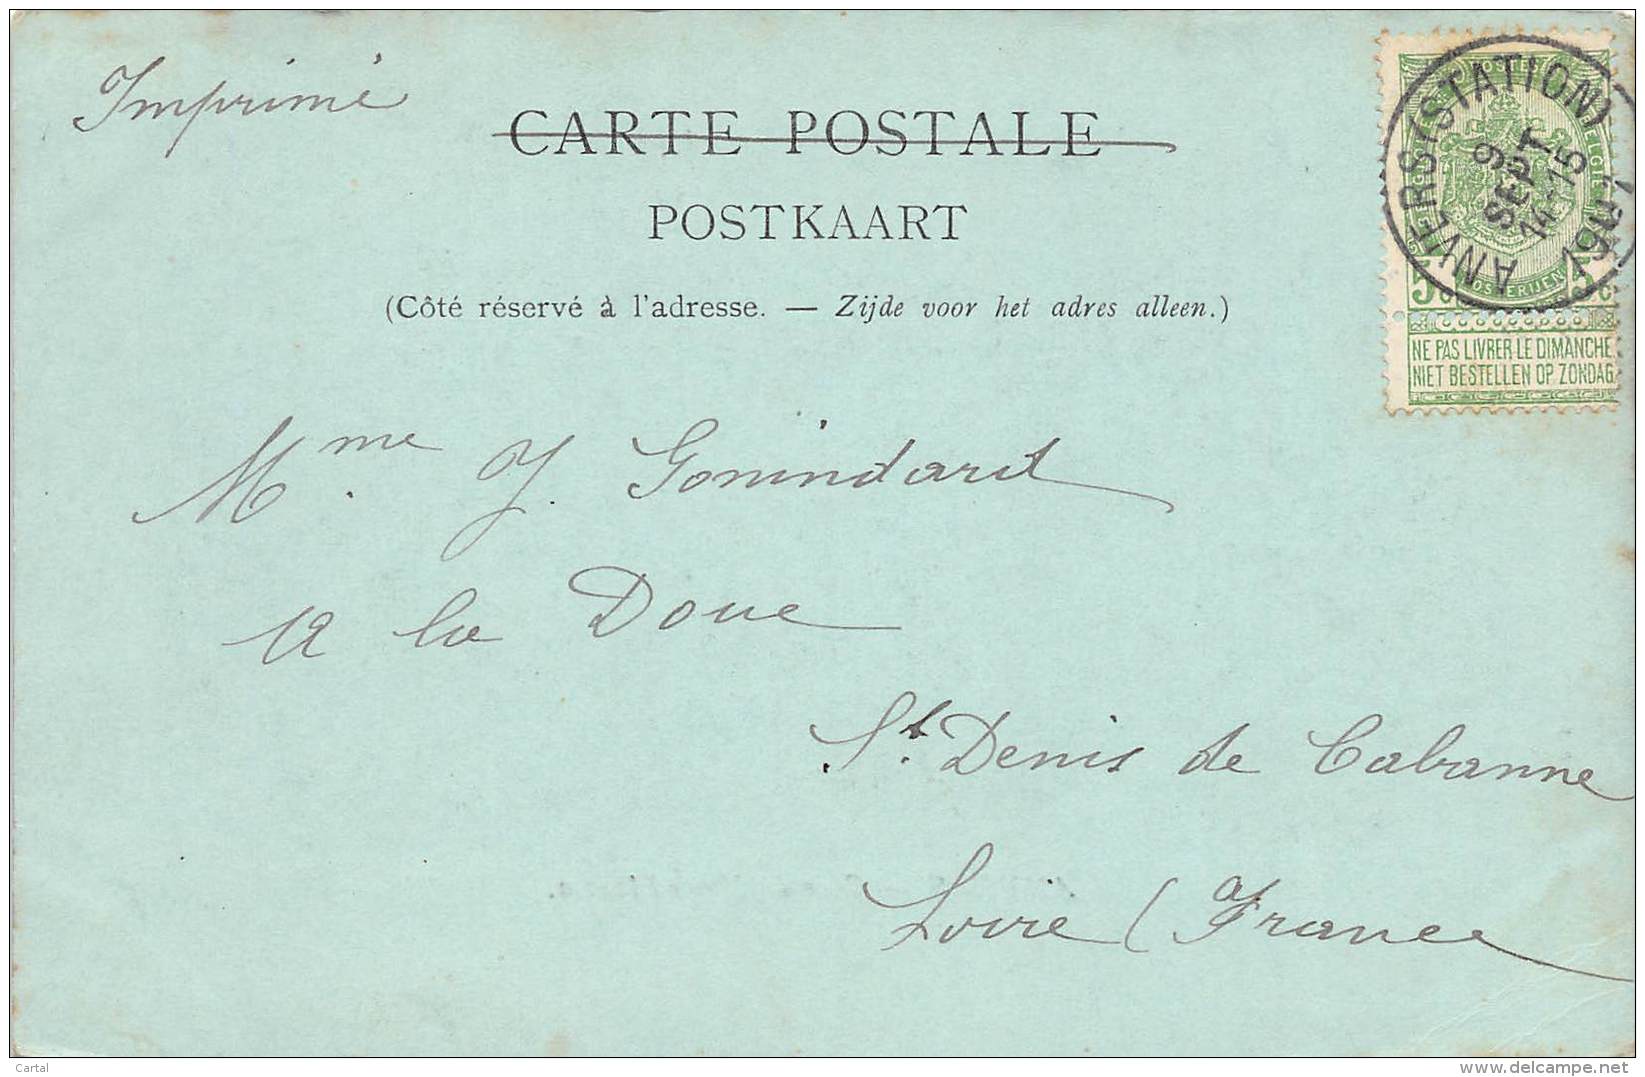 Imprimé
CARTE POSTALE
POSTKAART
(Côté réservé à l'adresse. — Zijde voor het adres alleen.)
ANVERS (STATION)
9
SEPT
14-15
5c 5c
NE PAS LIVRER LE DIMANCHE
NIET BESTELLEN OP ZONDAG
Mme J. Gonindard
A la Doue
St. Denis de Cabanne
Loire (France
Cartal
www.delcampe.net